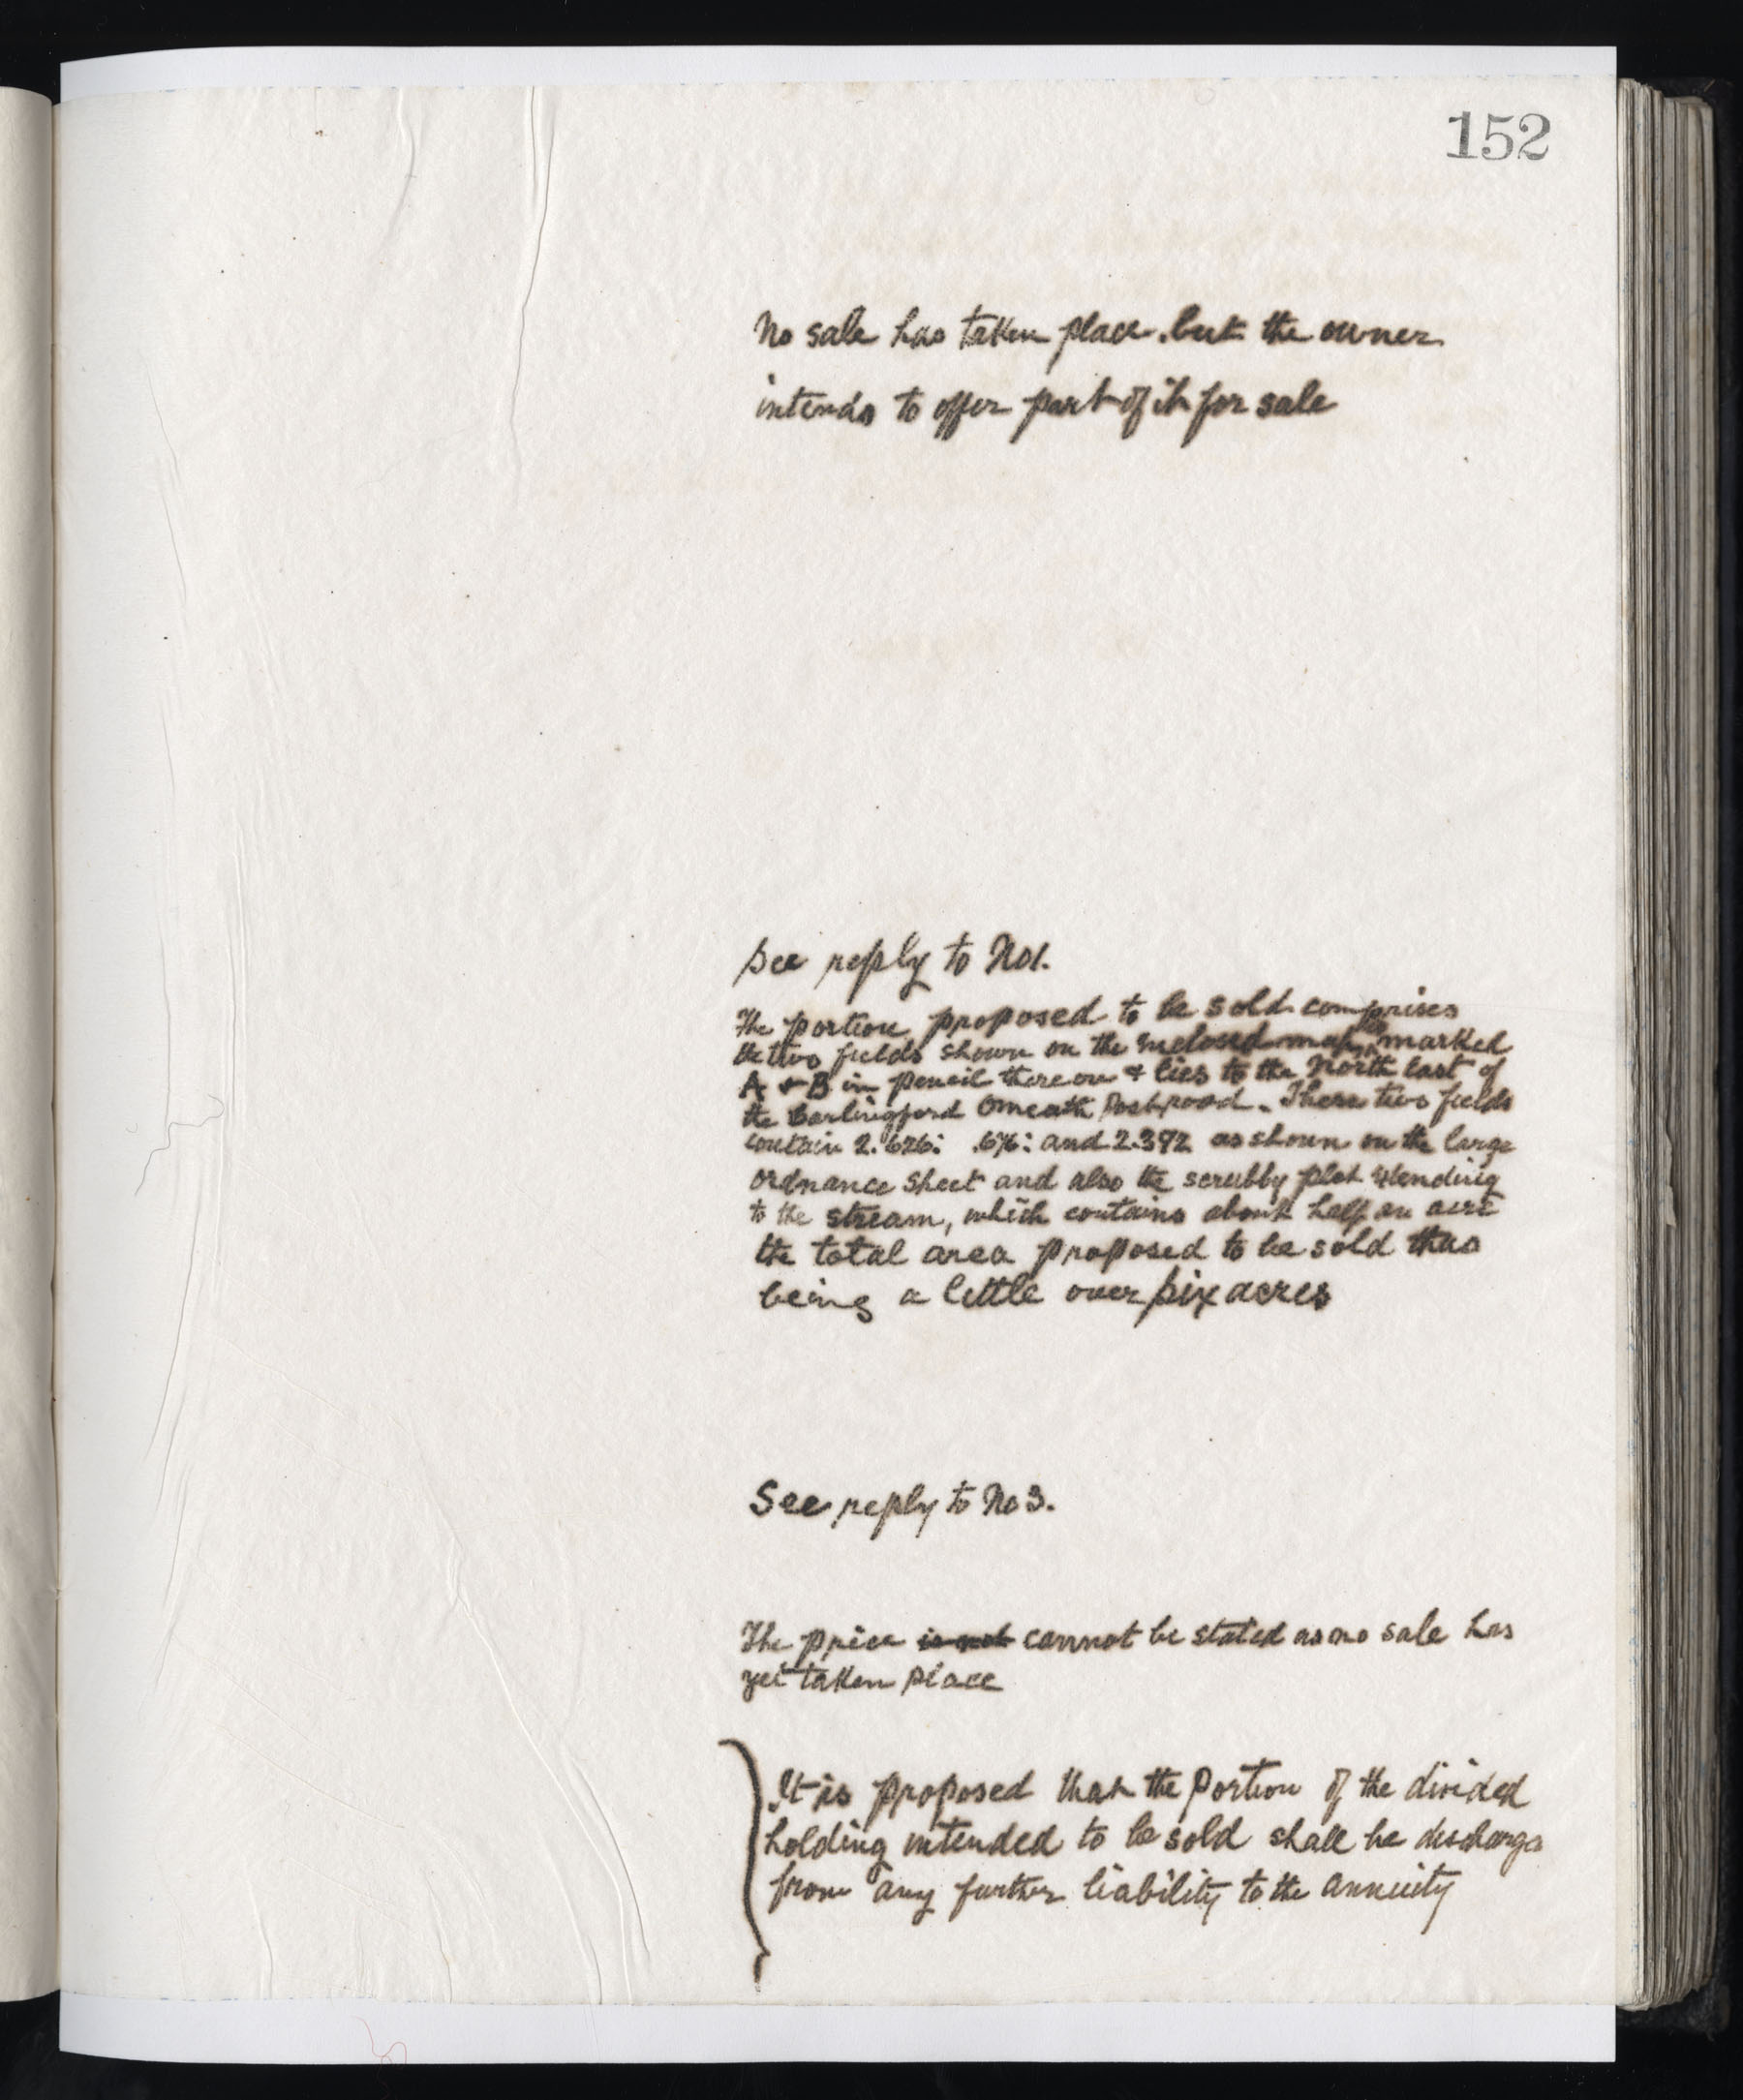 152
No sale has taken place. but the owner
intends to offer part of it for sale
See reply to No1.
The portion proposed to be sold comprises
the two fields shown on the inclosed map marked
A & B in pencil thereon & lies to the North East of
the Carlingford Omeath Post road. These two fields
contain 2.626: .676: and 2.392 as shown on the large
ordnance sheet and also the scrubby plot extending
to the stream, which contains about half an acre
the total area proposed to be sold thus
being a little over six acres
See reply to No 3.
The price is not cannot be stated as no sale has
yet taken place
It is proposed that the portion of the divided
holding intended to be sold shall be discharge
from any further liability to the annuity